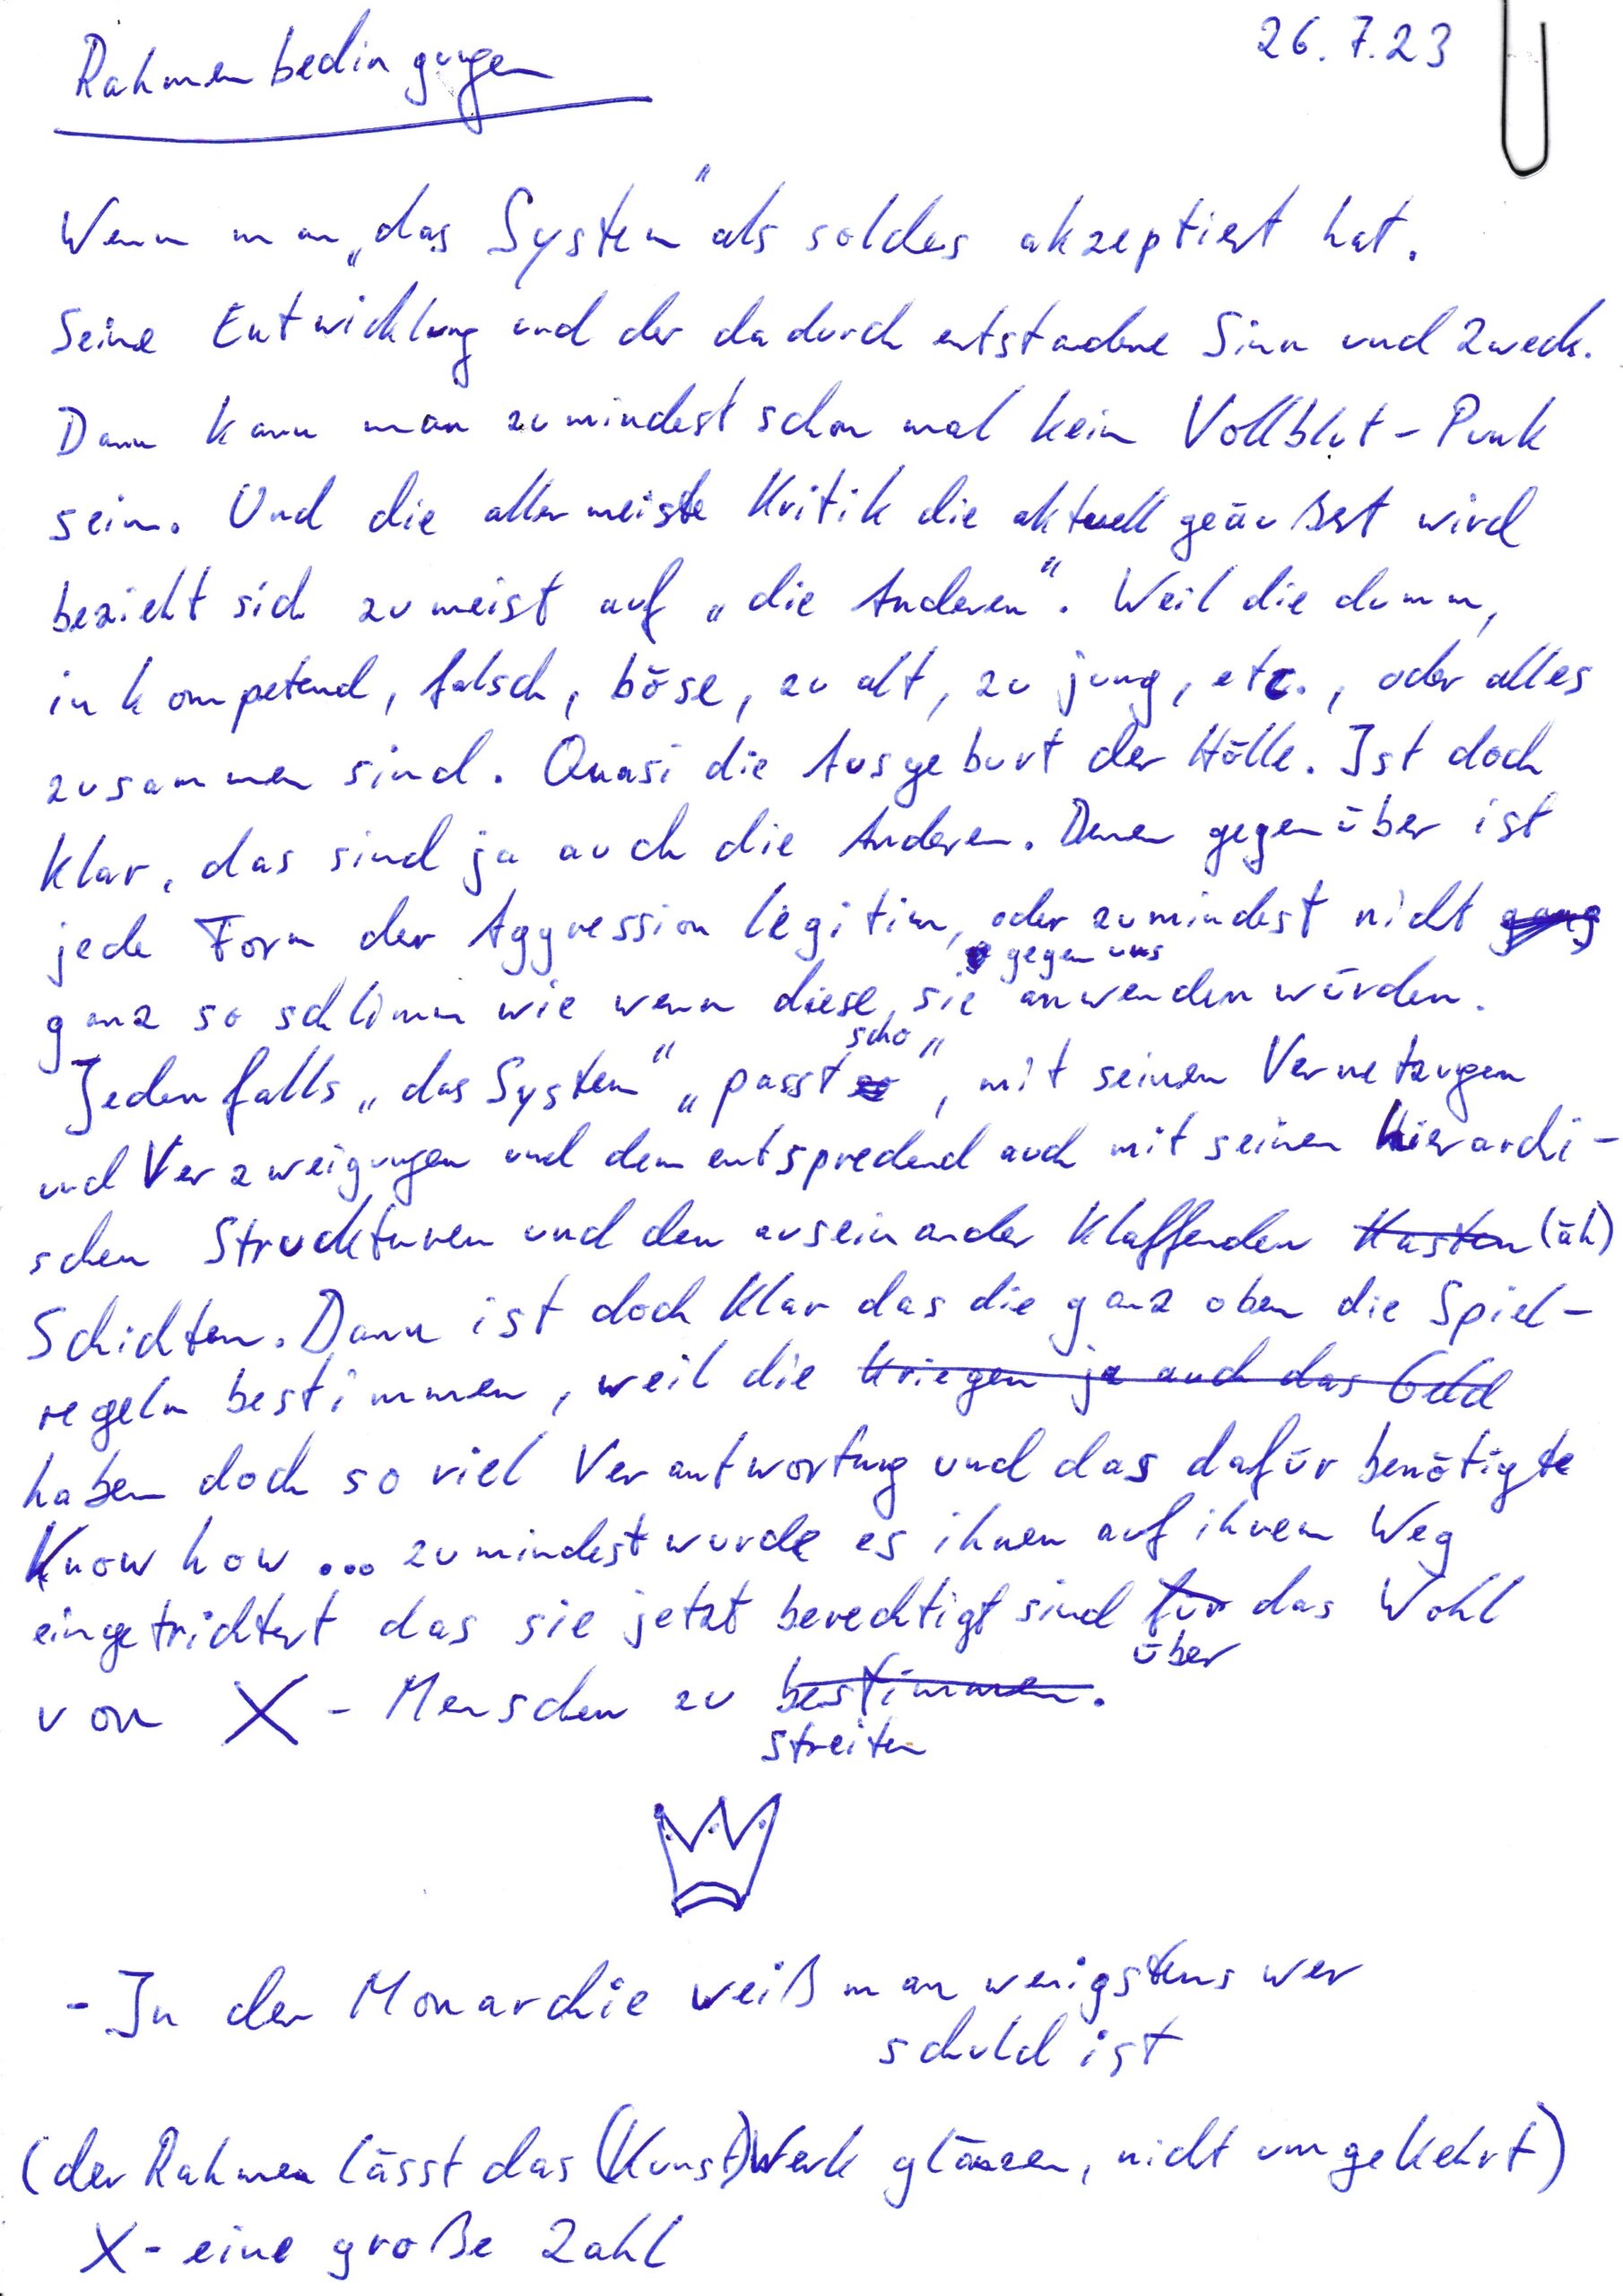 Rahmenbedingungen
26.7.23
Wenn man „das System“ als solches akzeptiert hat.
Seine Entwicklung und der dadurch entstandene Sinn und Zweck.
Dann kann man zumindest schon mal kein Vollblut-Punk
sein. Und die allermeiste Kritik die aktuell geäußert wird
bezieht sich zumeist auf „die Anderen“. Weil die dumm,
inkompetend, falsch, böse, zu alt, zu jung, etc., oder alles
zusammen sind. Quasi die Ausgeburt der Hölle. Ist doch
klar, das sind ja auch die Anderen. Denen gegenüber ist
jede Form der Aggression legitim, oder zumindest nicht
gegen uns
ganz so schlimm wie wenn diese, sie anwenden würden.
scho
Jedenfalls „das System“ „passt so“, mit seinen Vernetzungen
und Verzweigungen und dementsprechend auch mit seinen hierarchi-
schen Struckturen und den auseinander klaffenden Kasten (äh)
Schichten. Dann ist doch klar das die ganz oben die Spiel-
regeln bestimmen, weil die kriegen ja auch das Geld
haben doch so viel Verantwortung und das dafür benötigte
Know how ... zumindest wurde es ihnen auf ihrem Weg
eingetrichtert das sie jetzt berechtigt sind für das Wohl
über
von X - Menschen zu bestimmen.
streiten
- In der Monarchie weiß man wenigstens wer
schuld ist
(der Rahmen lässt das (Kunst)Werk glänzen, nicht umgekehrt)
X - eine große Zahl